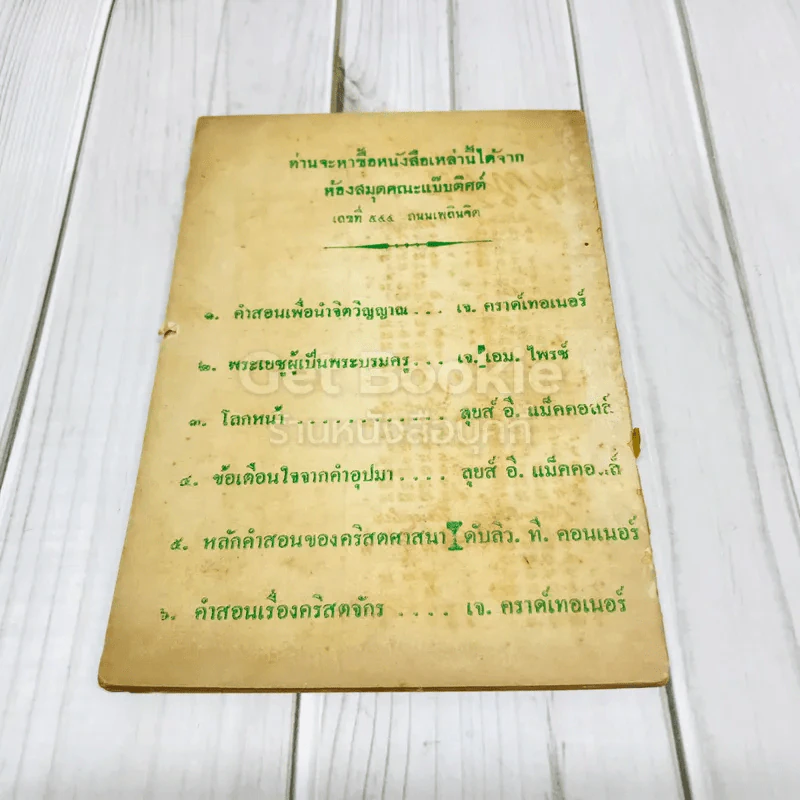 ท่านจะหาซื้อหนังสือเหล่านี้ได้จาก
ห้องสมุดคณะแบ๊บติศต์
เลขที่ ๕๔๔ ถนนเพลินจิต
๑. คำสอนเพื่อนำจิตวิญญาณ . . . เจ. คราด์เทอเนอร์
๒. พระเยซูผู้เป็นพระบรมครู . . . เจ. เอม. ไพรซ์
๓. โลกหน้า . . . . . . . . . . . . ลุยส์ อี. แม็คคอลล์
๔. ข้อเตือนใจจากคำอุปมา . . . . ลุยส์ อี. แม็คคอลล์
๕. หลักคำสอนของคริสตศาสนา ดับลิว. ที. คอนเนอร์
๖. คำสอนเรื่องคริสตจักร . . . . เจ. คราด์เทอเนอร์
Get Bookie
ร้านหนังสือบุคกี้